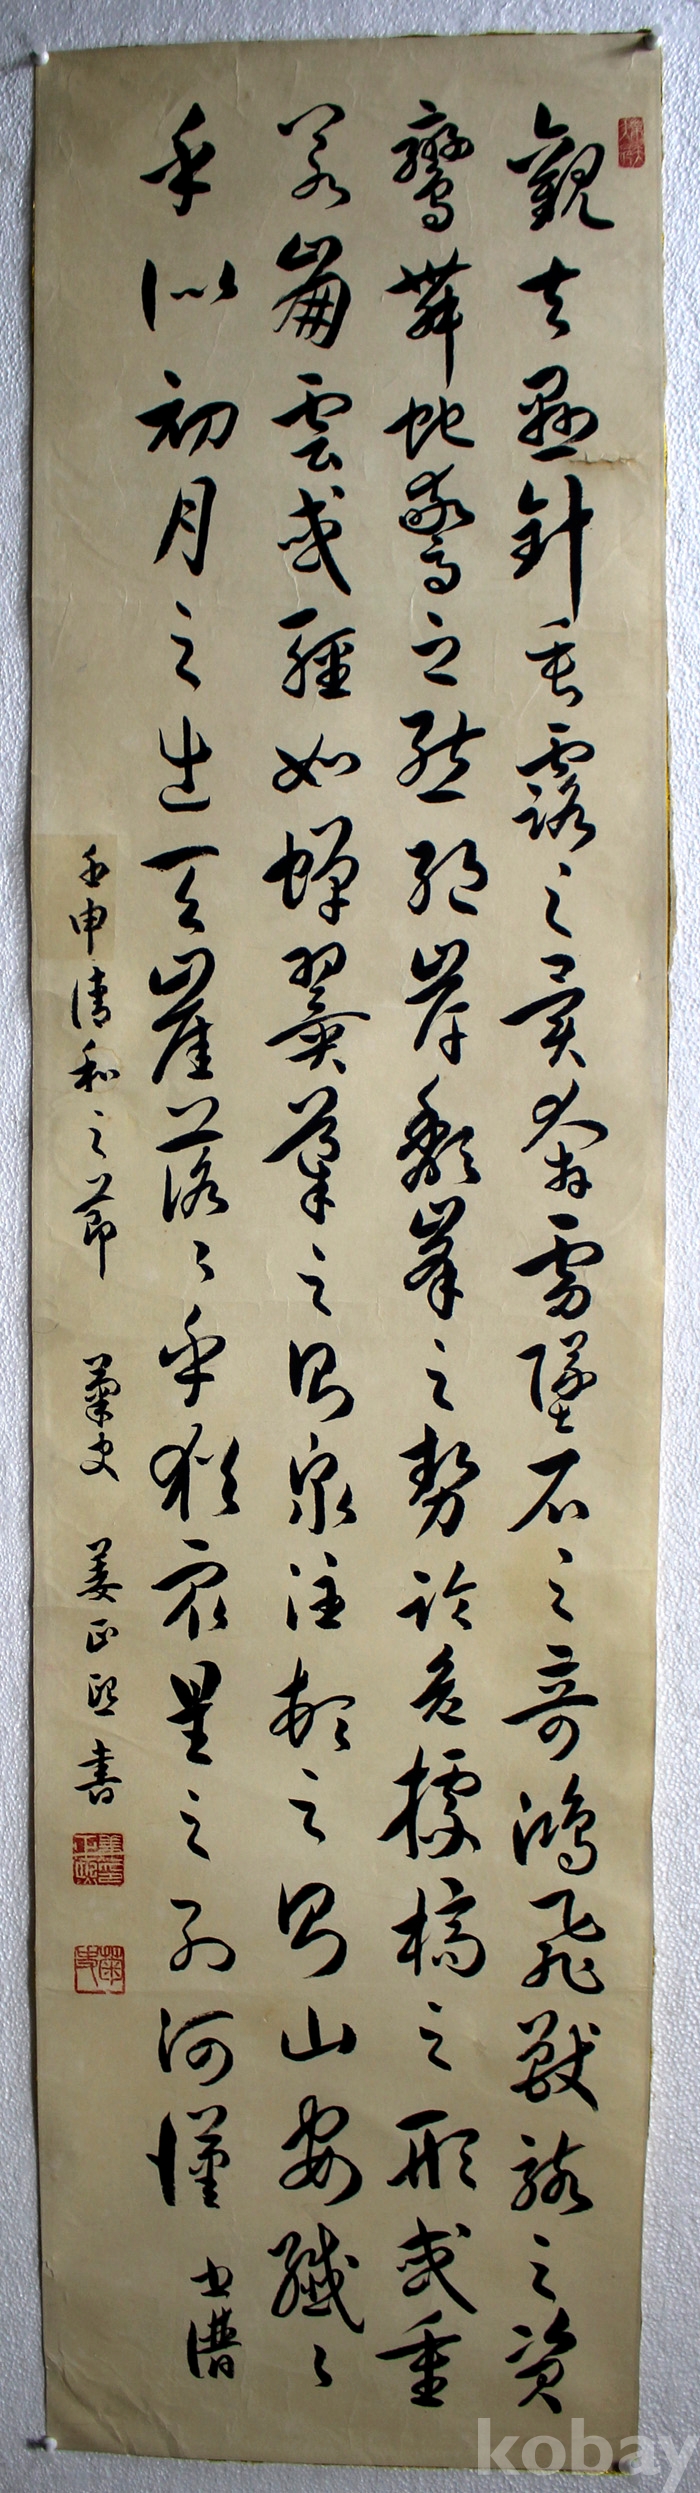 觀夫懸針垂露之異奔雷墜石之奇鴻飛獸駭之資
鸞舞蛇驚之態絕岸頹峯之勢臨危據槁之形或重
若崩雲或輕如蟬翼導之則泉注頓之則山安纖〻
乎似初月之出天崖落〻乎猶衆星之列河漢 書譜
壬申清和之節 菊史 姜正熙 書
kobay